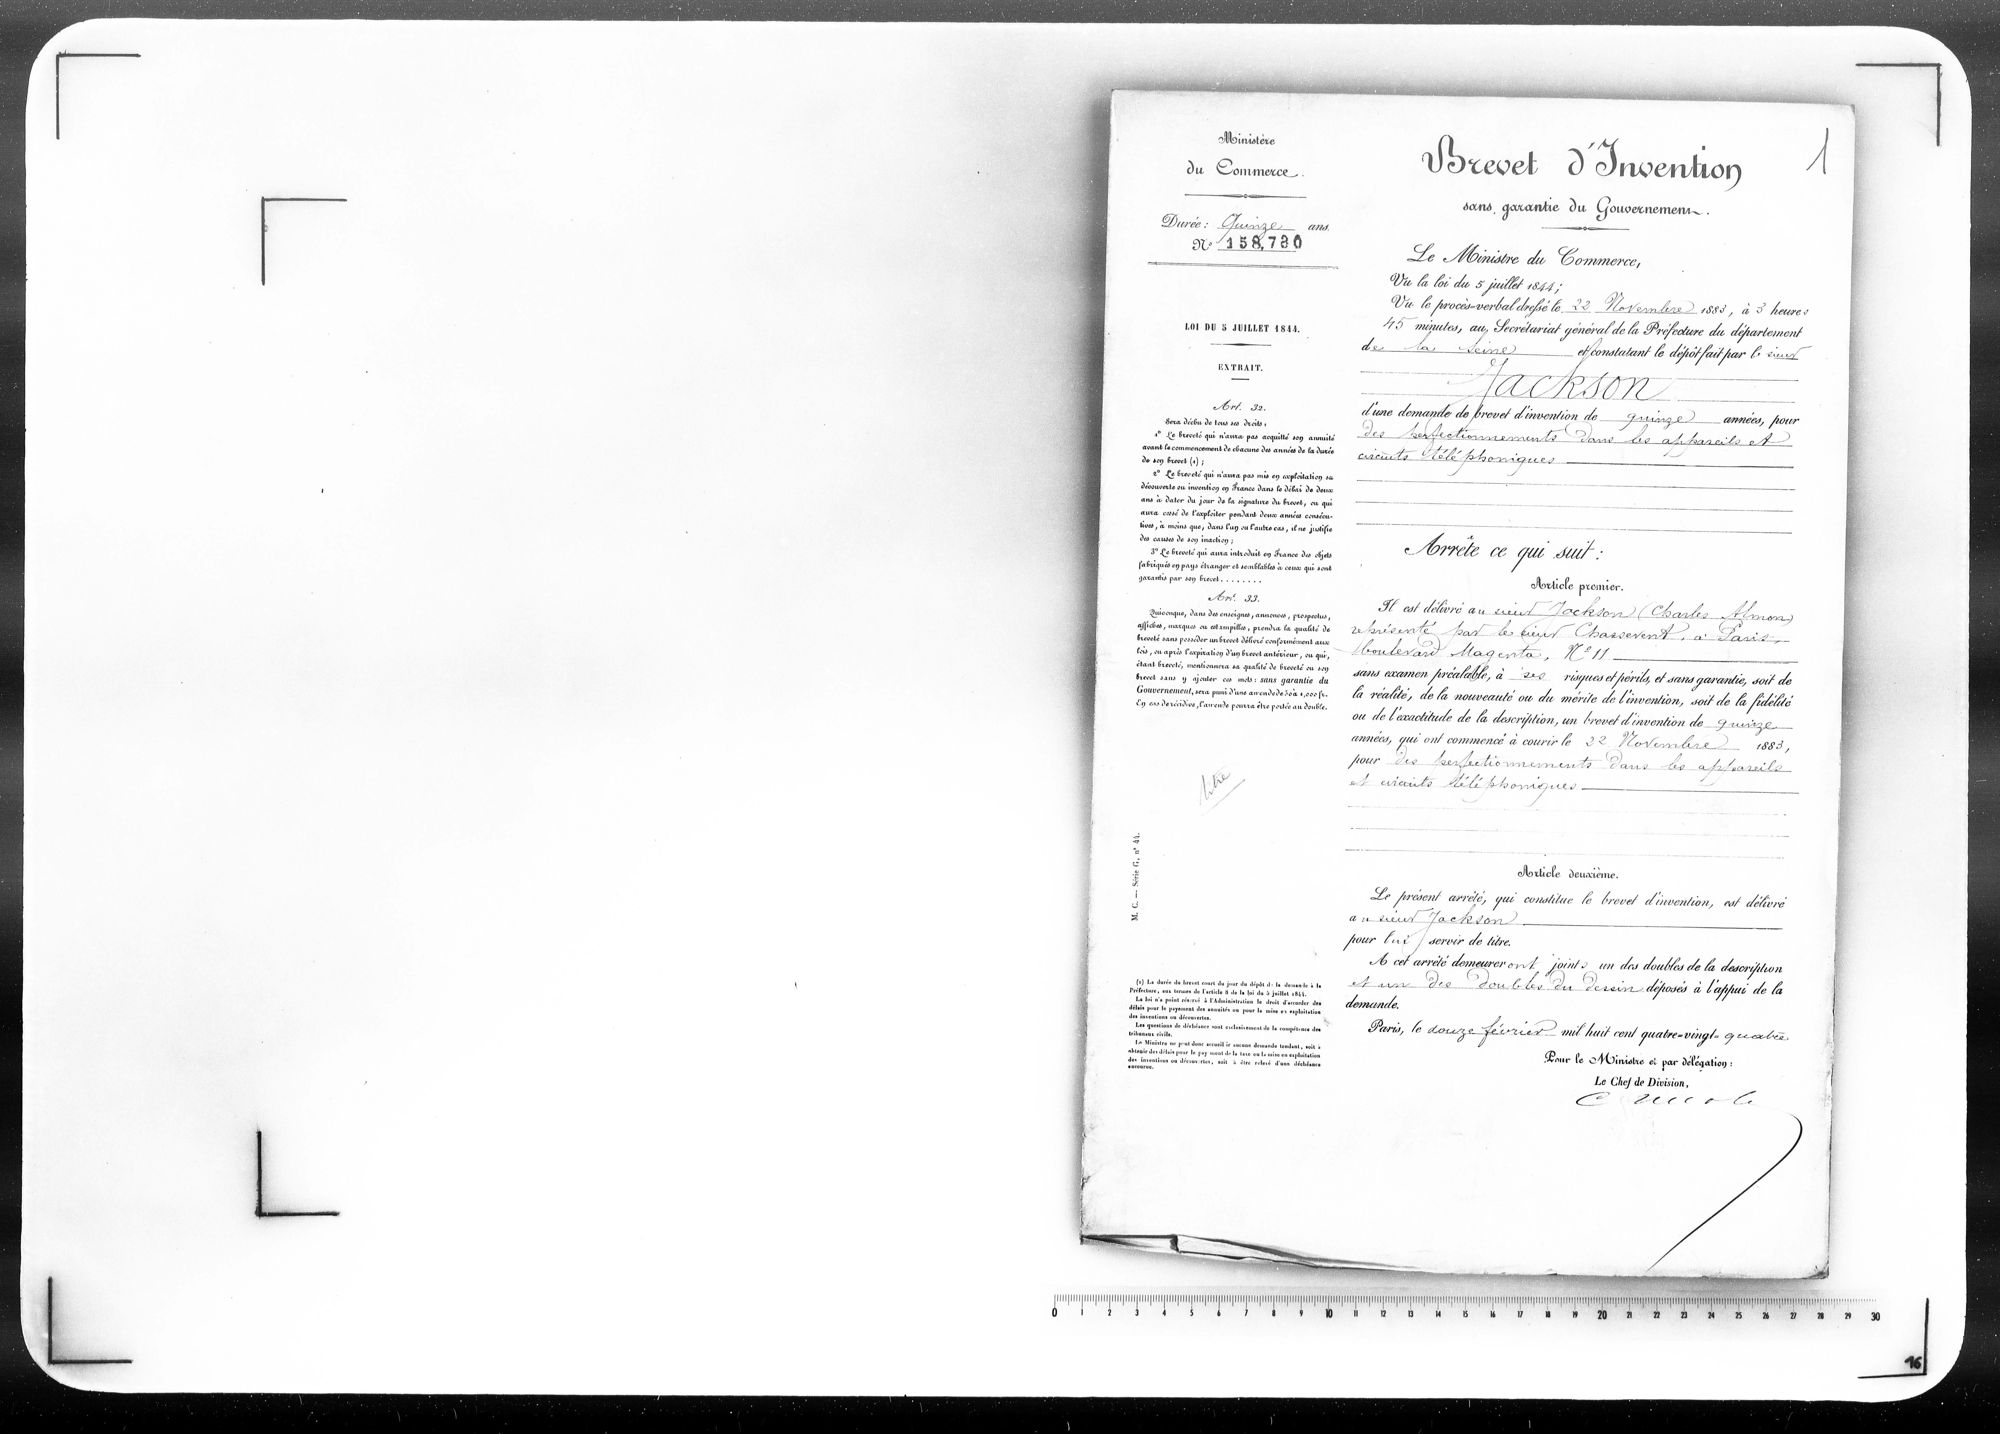 Ministère
du Commerce.
Durée : Quinze ans.
N° 158,780
LOI DU 5 JUILLET 1844.
EXTRAIT.
Art. 32.
Sera déchu de tous ses droits :
1° Le breveté qui n'aura pas acquitté son annuité
avant le commencement de chacune des années de la durée
de son brevet (1) ;
2° Le breveté qui n'aura pas mis en exploitation sa
découverte ou invention en France dans le délai de deux
ans à dater du jour de la signature du brevet, ou qui
aura cessé de l'exploiter pendant deux années consécu-
tives, à moins que, dans l'un ou l'autre cas, il ne justifie
des causes de son inaction ;
3° Le breveté qui aura introduit en France des objets
fabriqués en pays étranger et semblables à ceux qui sont
garantis par son brevet........
Art. 33.
Quiconque, dans des enseignes, annonces, prospectus,
affiches, marques ou estampilles, prendra la qualité de
breveté sans posséder un brevet délivré conformément aux
lois, ou après l'expiration d'un brevet antérieur, ou qui,
étant breveté, mentionnera sa qualité de breveté ou son
brevet sans y ajouter ces mots : sans garantie du
Gouvernement, sera puni d'une amende de 50 à 1,000 fr.
En cas de récidive, l'amende pourra être portée au double.
titre
M. C. — Série G, n° 44.
(1) La durée du brevet court du jour du dépôt de la demande à la
Préfecture, aux termes de l'article 8 de la loi du 5 juillet 1844.
La loi n'a point réservé à l'Administration le droit d'accorder des
délais pour le payement des annuités ou pour la mise en exploitation
des inventions ou découvertes.
Les questions de déchéance sont exclusivement de la compétence des
tribunaux civils.
Le Ministre ne peut donc accueillir aucune demande tendant, soit à
obtenir des délais pour le payement de la taxe ou la mise en exploitation
des inventions ou découvertes, soit à être relevé d'une déchéance
encourue.
Brevet d'Invention
1
sans garantie du Gouvernement.
Le Ministre du Commerce,
Vu la loi du 5 juillet 1844 ;
Vu le procès-verbal dressé le 22 Novembre 1883, à 3 heures
45 minutes, au Secrétariat général de la Préfecture du département
de la Seine et constatant le dépôt fait par le sieur
Jackson
d'une demande de brevet d'invention de quinze années, pour
des perfectionnements dans les appareils et
circuits téléphoniques
Arrête ce qui suit :
Article premier.
Il est délivré au sieur Jackson (Charles Almon)
représenté par le sieur Chassevent, à Paris,
boulevard Magenta, N° 11
sans examen préalable, à ses risques et périls, et sans garantie, soit de
la réalité, de la nouveauté ou du mérite de l'invention, soit de la fidélité
ou de l'exactitude de la description, un brevet d'invention de quinze
années, qui ont commencé à courir le 22 Novembre 1883,
pour des perfectionnements dans les appareils
et circuits téléphoniques
Article deuxième.
Le présent arrêté, qui constitue le brevet d'invention, est délivré
au sieur Jackson
pour lui servir de titre.
A cet arrêté demeureront joints un des doubles de la description
et un des doubles du dessin déposés à l'appui de la
demande.
Paris, le douze février mil huit cent quatre-vingt-quatre
Pour le Ministre et par délégation :
Le Chef de Division,
0 1 2 3 4 5 6 7 8 9 10 11 12 13 14 15 16 17 18 19 20 21 22 23 24 25 26 27 28 29 30
16